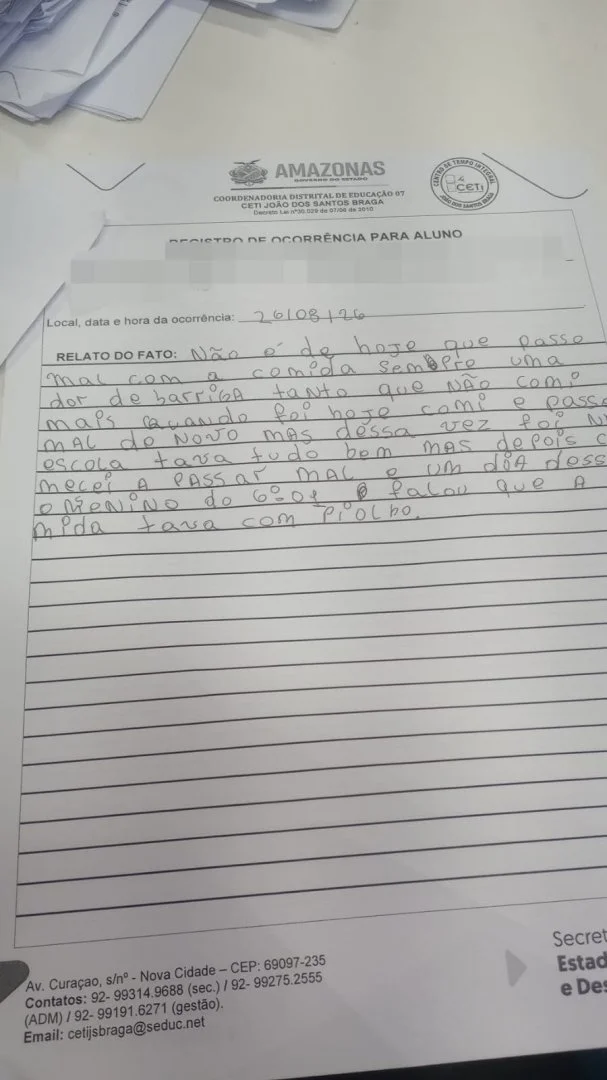 AMAZONAS
GOVERNO DO ESTADO
COORDENADORIA DISTRITAL DE EDUCAÇÃO 07
CETI JOÃO DOS SANTOS BRAGA
Decreto Lei nº30.029 de 07/06 de 2010
CENTRO DE TEMPO INTEGRAL
CETI
JOÃO DOS SANTOS BRAGA
REGISTRO DE OCORRÊNCIA PARA ALUNO
Local, data e hora da ocorrência: 26/08/26
RELATO DO FATO: Não é de hoje que passo
mal com a comida sempre uma
dor de barriga tanto que NÃO comi
mais quando foi hoje comi e passe
MAL de NOVO MAS dessa vez foi N
escola tava tudo bem MAS depois c
mecei A PASSAR MAL e UM diA dess
o MENINO do 6º01 falou que A
mida tava com Piolho.
Av. Curaçao, s/nº - Nova Cidade – CEP: 69097-235
Contatos: 92- 99314.9688 (sec.) / 92- 99275.2555
(ADM) / 92- 99191.6271 (gestão).
Email: cetijsbraga@seduc.net
Secret
Estad
e Des